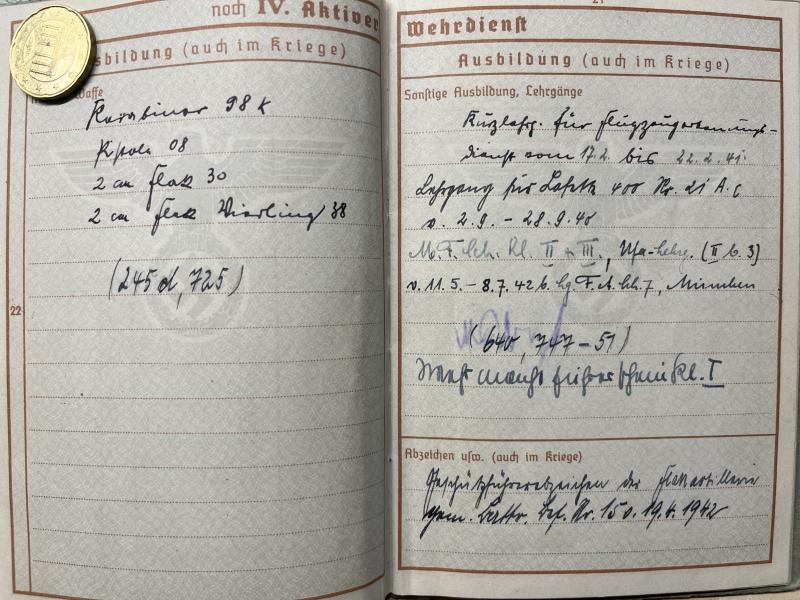 noch IV. Aktiver
sbildung (auch im Kriege)
Waffe
Karabiner 98 K
Pistole 08
2 cm Flak 30
2 cm Flak Vierling 38
(245 d, 725)
22
21
Wehrdienst
Ausbildung (auch im Kriege)
Sonstige Ausbildung, Lehrgänge
Kurzlehrg. für Flugzeugerkennungs-
dienst vom 17.2. bis 22.2.41.
Lehrgang für Lafette 400 Nr.
v. 2.9. - 28.9.40
Kl. II u. III., (II b. 3)
v. 11.5. - 8.7.42 b. 7, München
(640, 747-51)
Kl. I
Abzeichen usw. (auch im Kriege)
Geschützführerabzeichen der Flakartillerie
gem. Battr. Bef. Nr. 15 v. 19.4.1942